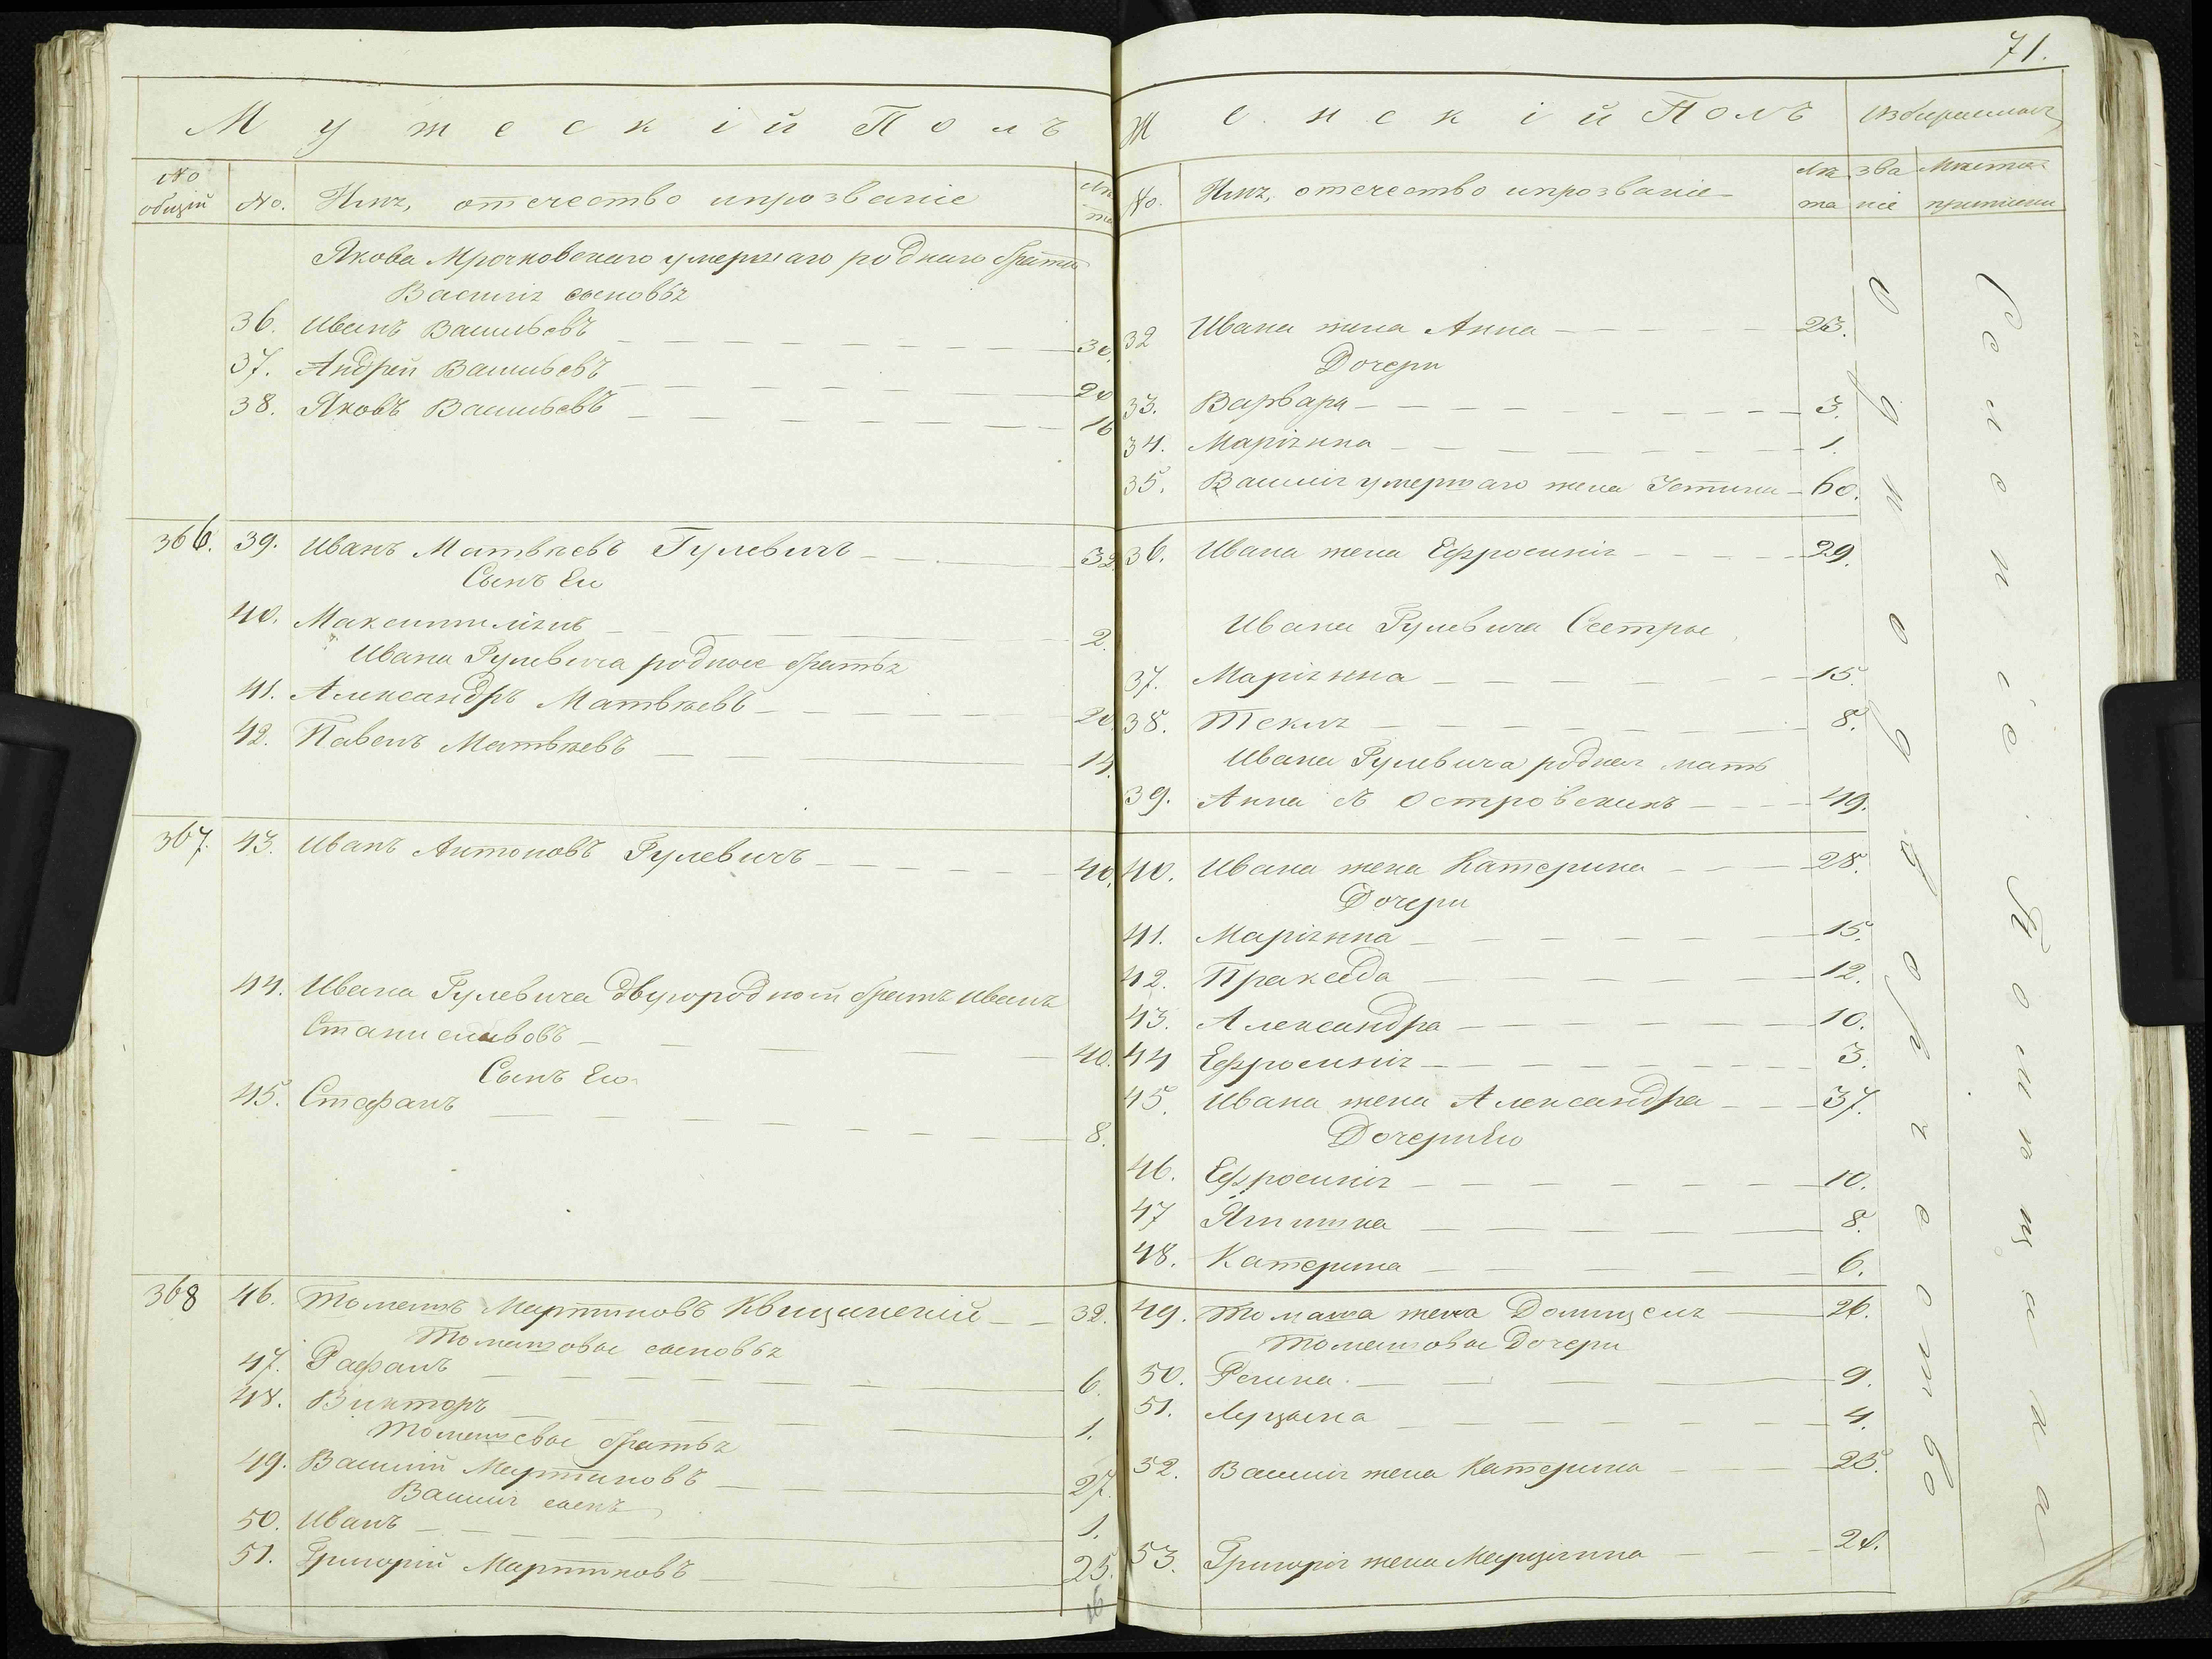 71.
Мужескій Полъ
No общій
No.
Имя, отечество и прозваніе
Лѣта
Якова Мрочковскаго умершаго роднаго брата
Василія сыновья
36. Иванъ Васильевъ 30.
37. Андрей Васильевъ 20
38. Яковъ Васильевъ 16
366. 39. Иванъ Матвѣевъ Гулевичъ 32.
Сынъ Его
40. Максимиліянъ 2.
Ивана Гулевича родные братья
41. Александръ Матвѣевъ 20.
42. Павелъ Матвѣевъ 14.
367. 43. Иванъ Антоновъ Гулевичъ 40.
44. Ивана Гулевича двуюродной братъ Иванъ
Станиславовъ 40.
Сынъ Его
45. Стефанъ 8.
368 46. Томашъ Мартиновъ Квицинскій 32.
Томашовы сыновья
47. Рафаилъ 6.
48. Викторъ 1.
Томашевы братья
49. Василій Мартиновъ 27.
Василія сынъ
50. Иванъ 1.
51. Григорій Мартиновъ 25.
Женскій Полъ
No.
Имя, отечество и прозваніе
Лѣта
званіе
32 Ивана жена Анна 23.
Дочери
33. Варвара 3.
34. Маріянна 1.
35. Василія умершаго жена Устина 60.
36. Ивана жена Ефросинія 29.
Ивана Гулевича Сестры
37. Маріянна 15.
38. Текля 8.
Ивана Гулевича родная мать
39. Анна съ Островскихъ 49.
40. Ивана жена Катерина 28.
Дочери
41. Маріянна 15.
42. Пракседа 12.
43. Александра 10.
44 Ефросинія 3.
45. Ивана жена Александра 37.
Дочери Его
46. Ефросинія 10.
47 8.
48. Катерина 6.
49. Томаша жена Доминцеля 26.
Томашовы Дочери
50. Регина 9.
51. Луцына 4.
52. Василія жена Катерина 25.
53. Григорія жена Марціянна 21.
Однодворческое
Селеніе